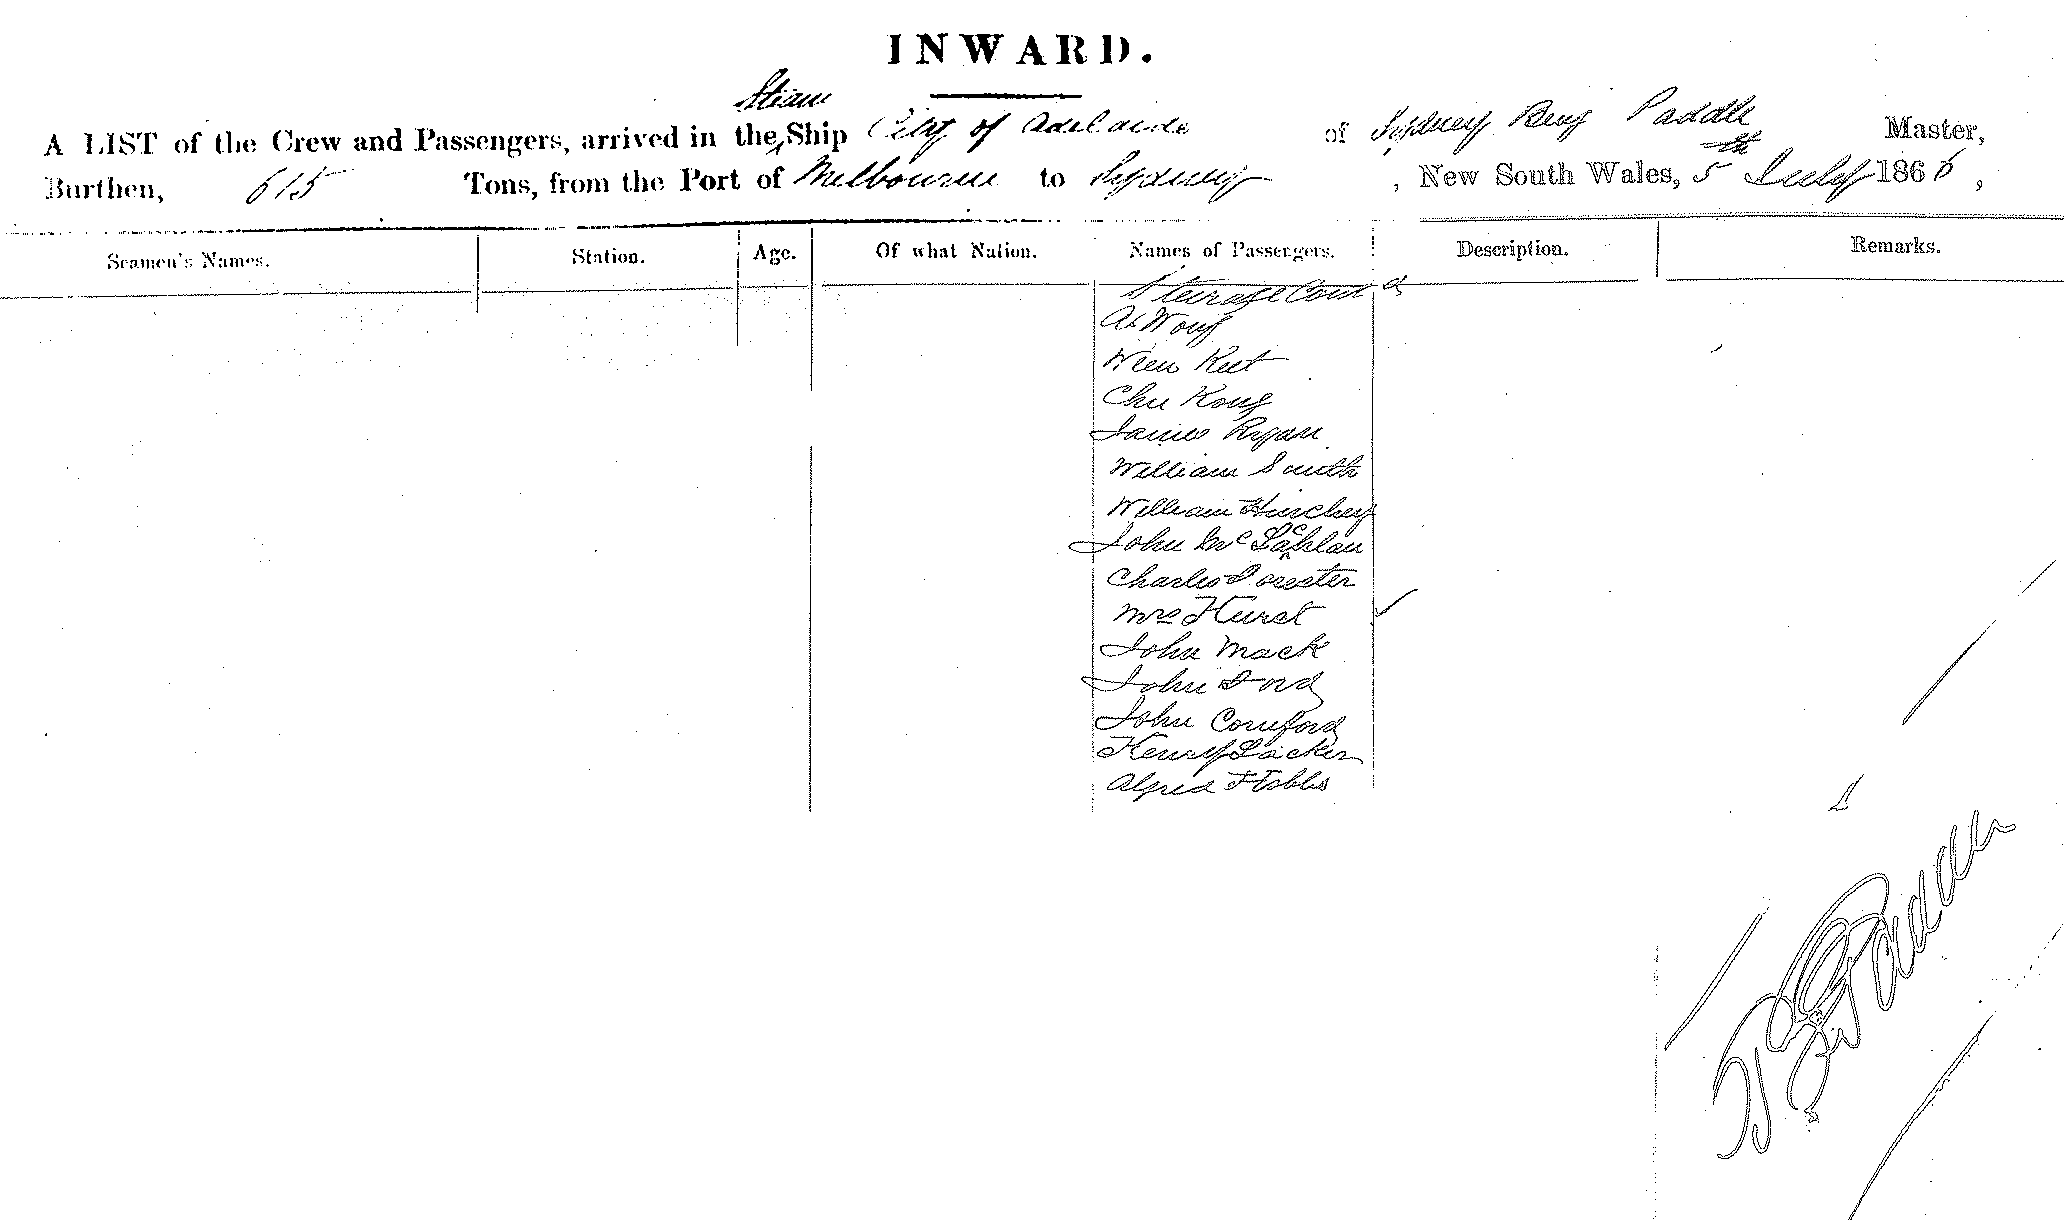 INWARD.
Steam
A LIST of the Crew and Passengers, arrived in the Ship City of Adelaide of Sydney Benj Paddle Master,
Burthen, 615 Tons, from the Port of Melbourne to Sydney, New South Wales, 5th July 1866,
Seamen's Names. Station. Age. Of what Nation. Names of Passengers. Description. Remarks.
Steerage Cont d
Ah Wong
Chu Kong
James Ryan
William Smith
William Hinchey
John McLachlan
Charles Forester
Mrs Hurst
John Mack
John Ford
John Cornford
Henry Lacker
Alfred Hobbs